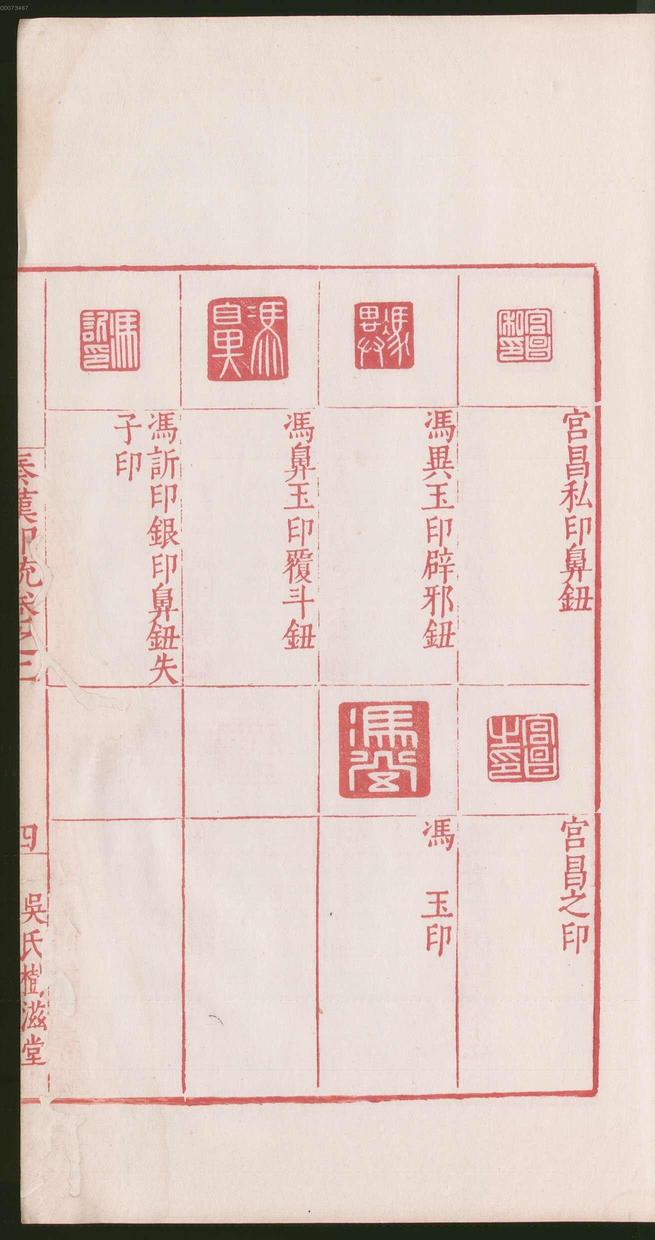 00073467
宫昌私印鼻鈕
馮異玉印辟邪鈕
馮鼻玉印覆斗鈕
馮訢印銀印鼻鈕失
子印
宫昌之印
馮 玉印
秦漢印統卷之三
四
吳氏樹滋堂